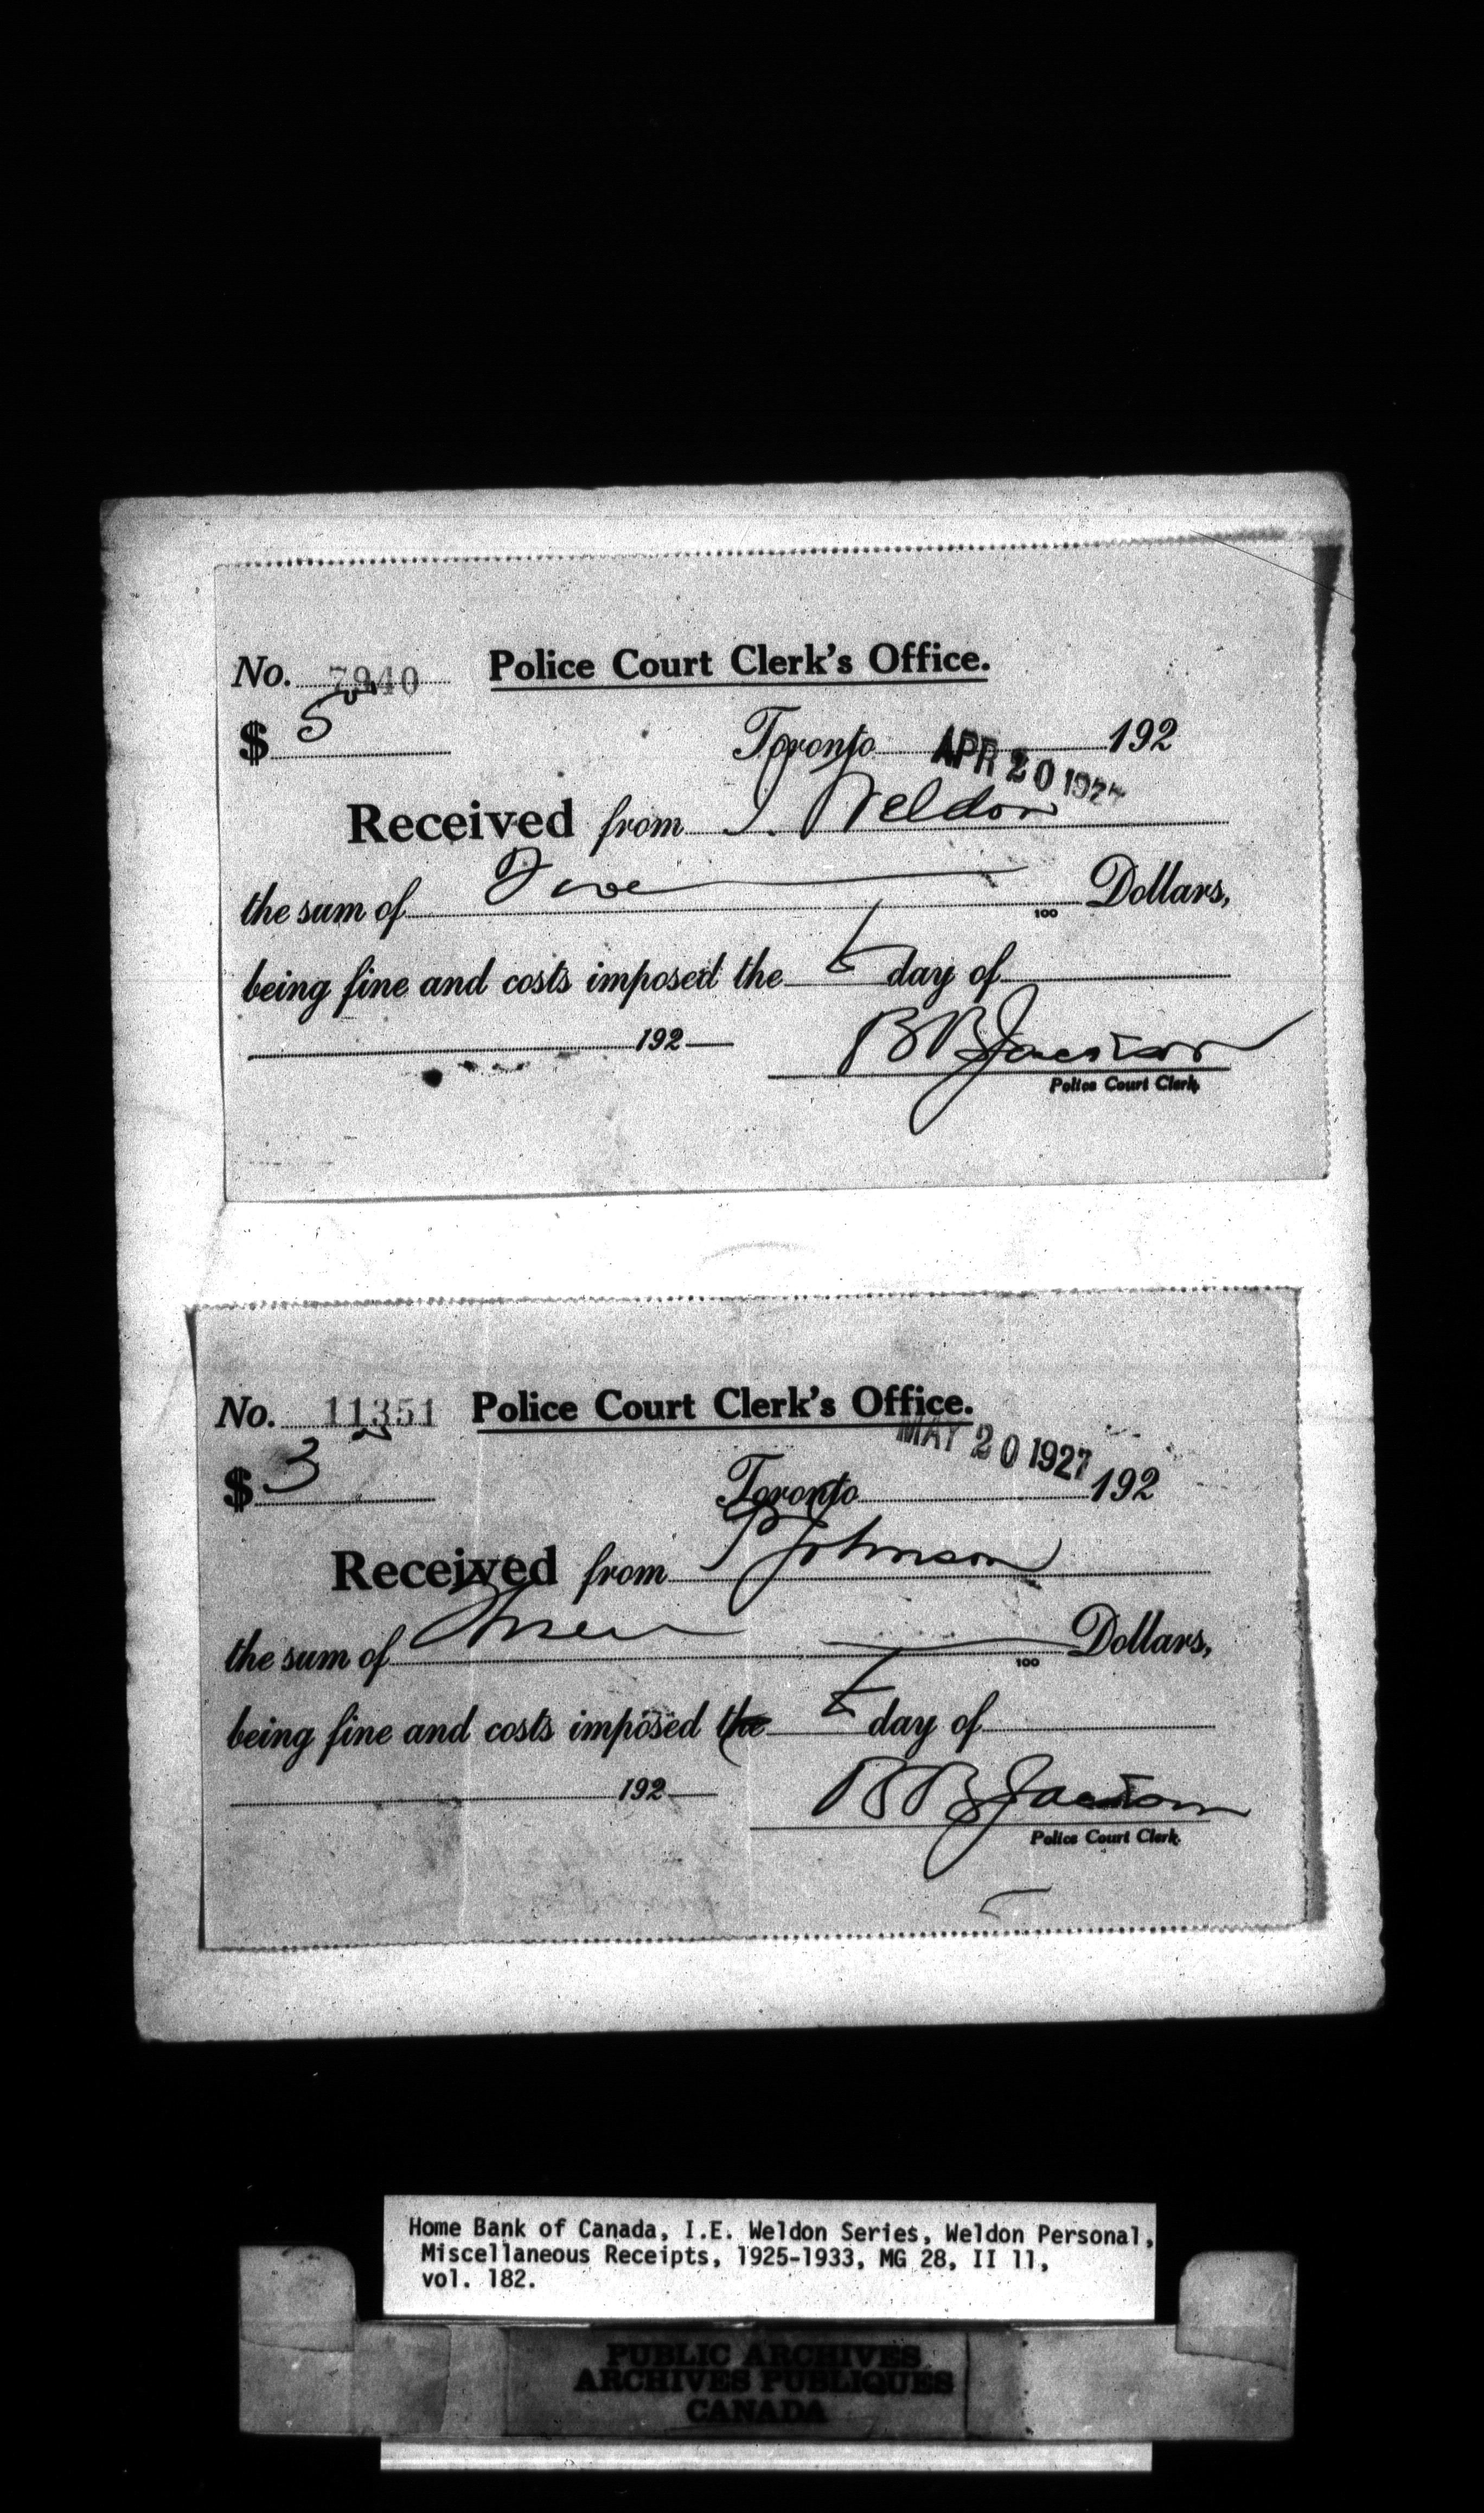 No. 7940 Police Court Clerk's Office.
$ 5 00
Toronto APR 20 1927 192
Received from I. Weldon
the sum of Five 100 Dollars,
being fine and costs imposed the day of
192
B B Jackson
Police Court Clerk.
No. 11351 Police Court Clerk's Office.
MAY 20 1927
$ 3
Toronto 192
Received from P Johnson
the sum of Three 100 Dollars,
being fine and costs imposed the day of
192
B B Jackson
Police Court Clerk.
Home Bank of Canada, I.E. Weldon Series, Weldon Personal,
Miscellaneous Receipts, 1925-1933, MG 28, II 11,
vol. 182.
PUBLIC ARCHIVES
ARCHIVES PUBLIQUES
CANADA